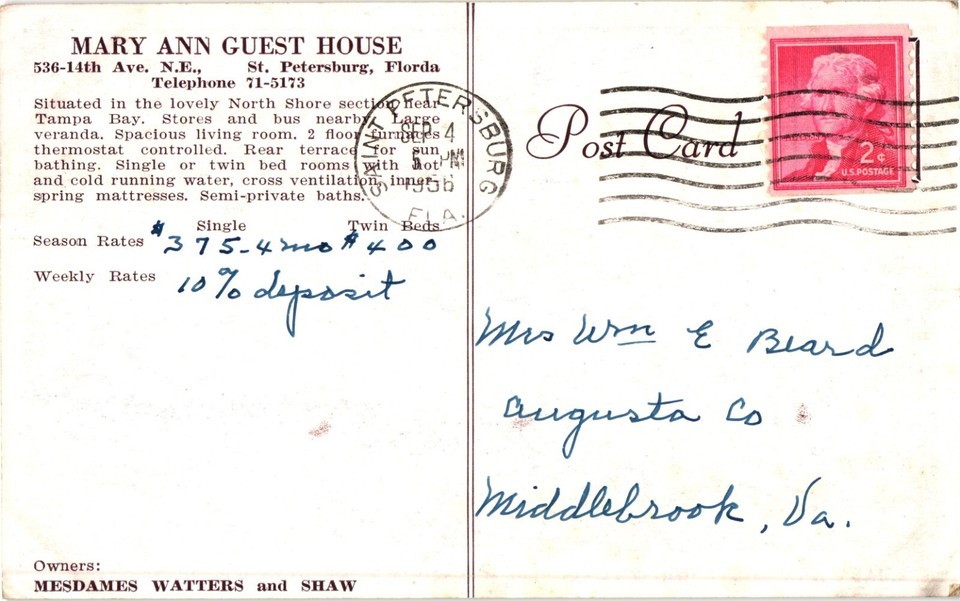 MARY ANN GUEST HOUSE
536-14th Ave. N.E., St. Petersburg, Florda
Telephone 71-5173
Situated in the lovely North Shore section near
Tampa Bay. Stores and bus nearby. Large
veranda. Spacious living room. 2 floor furnaces
thermostat controlled. Rear terrace for sun
bathing. Single or twin bed rooms with hot
and cold running water, cross ventilation, inner-
spring mattresses. Semi-private baths.
Single Twin Beds
Season Rates $375-4mo $400
Weekly Rates 10% deposit
Owners:
MESDAMES WATTERS and SHAW
SAINT PETERSBURG
SEP 4
PM
1956
FLA.
Post Card
2¢
U.S. POSTAGE
Mrs Wm E Beard
Augusta Co
Middlebrook, Va.